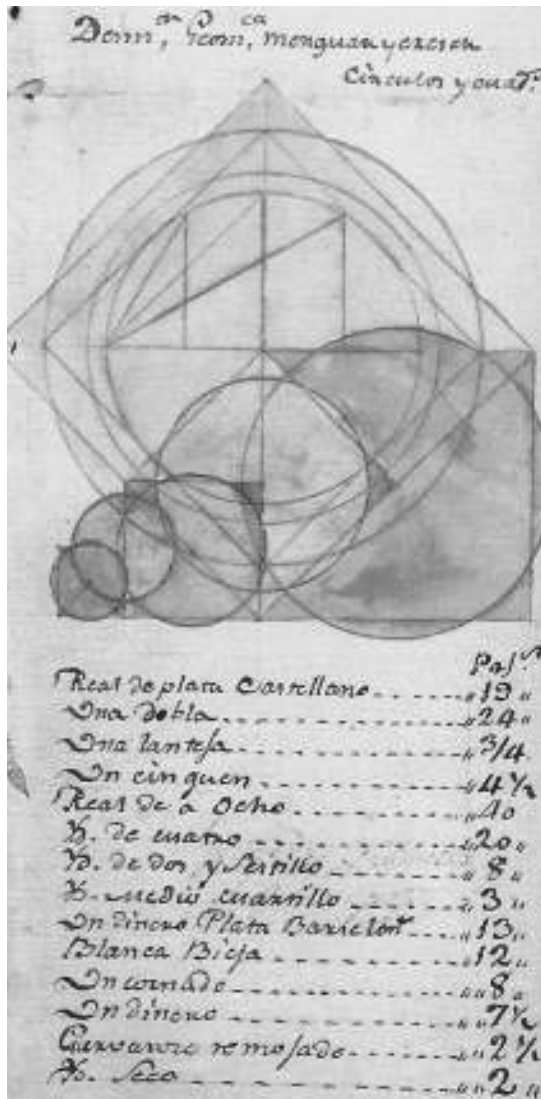 Demon, Geom, menguan y crecen
Circulos y quad.
Real de plata Castellano ------ 19
Una dobla ------ 24
Una lanteja ------ 3/4
Un cinquen ------ 4 1/2
Real de a Ocho ------ 40
Yd. de cuatro ------ 20
Yd. de dos y Sensillo ------ 8
Yd. medio cuartillo ------ 3
Un dinero Plata Barcelon ------ 13
Blanca Bieja ------ 12
Un cornado ------ 8
Un dinero ------ 7 1/2
Garvanzo remojado ------ 2 1/2
Yd. Seco ------ 2